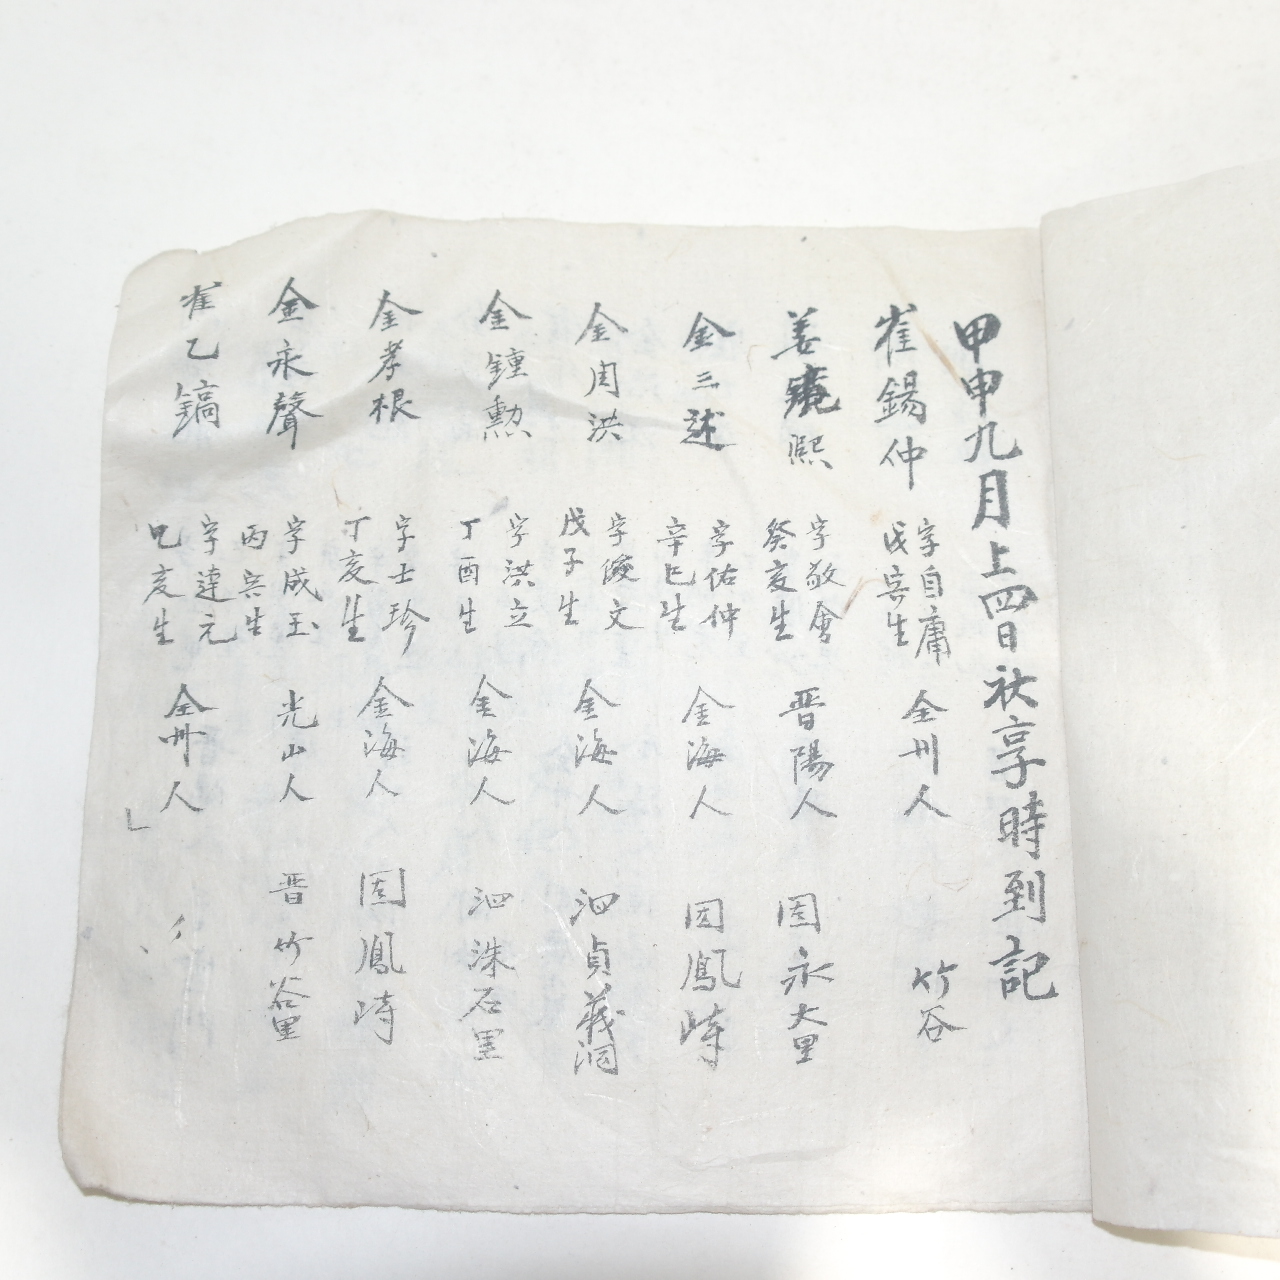 甲申九月上四日秋享時到記
崔錫仲 字自庸 戊寅生 全州人 竹谷
姜熙 字敬會 癸亥生 晋陽人 固永大里
金三述 字佑仲 辛巳生 金海人 固鳳峙
金周洪 字俊文 戊子生 金海人 泗貞義洞
金鍾勲 字洪立 丁酉生 金海人 泗洙石里
金孝根 字士珍 丁亥生 金海人 固鳳峙
金永聲 字成玉 丙寅生 光山人 晋竹谷里
崔乙鎬 字達元 乙亥生 全州人